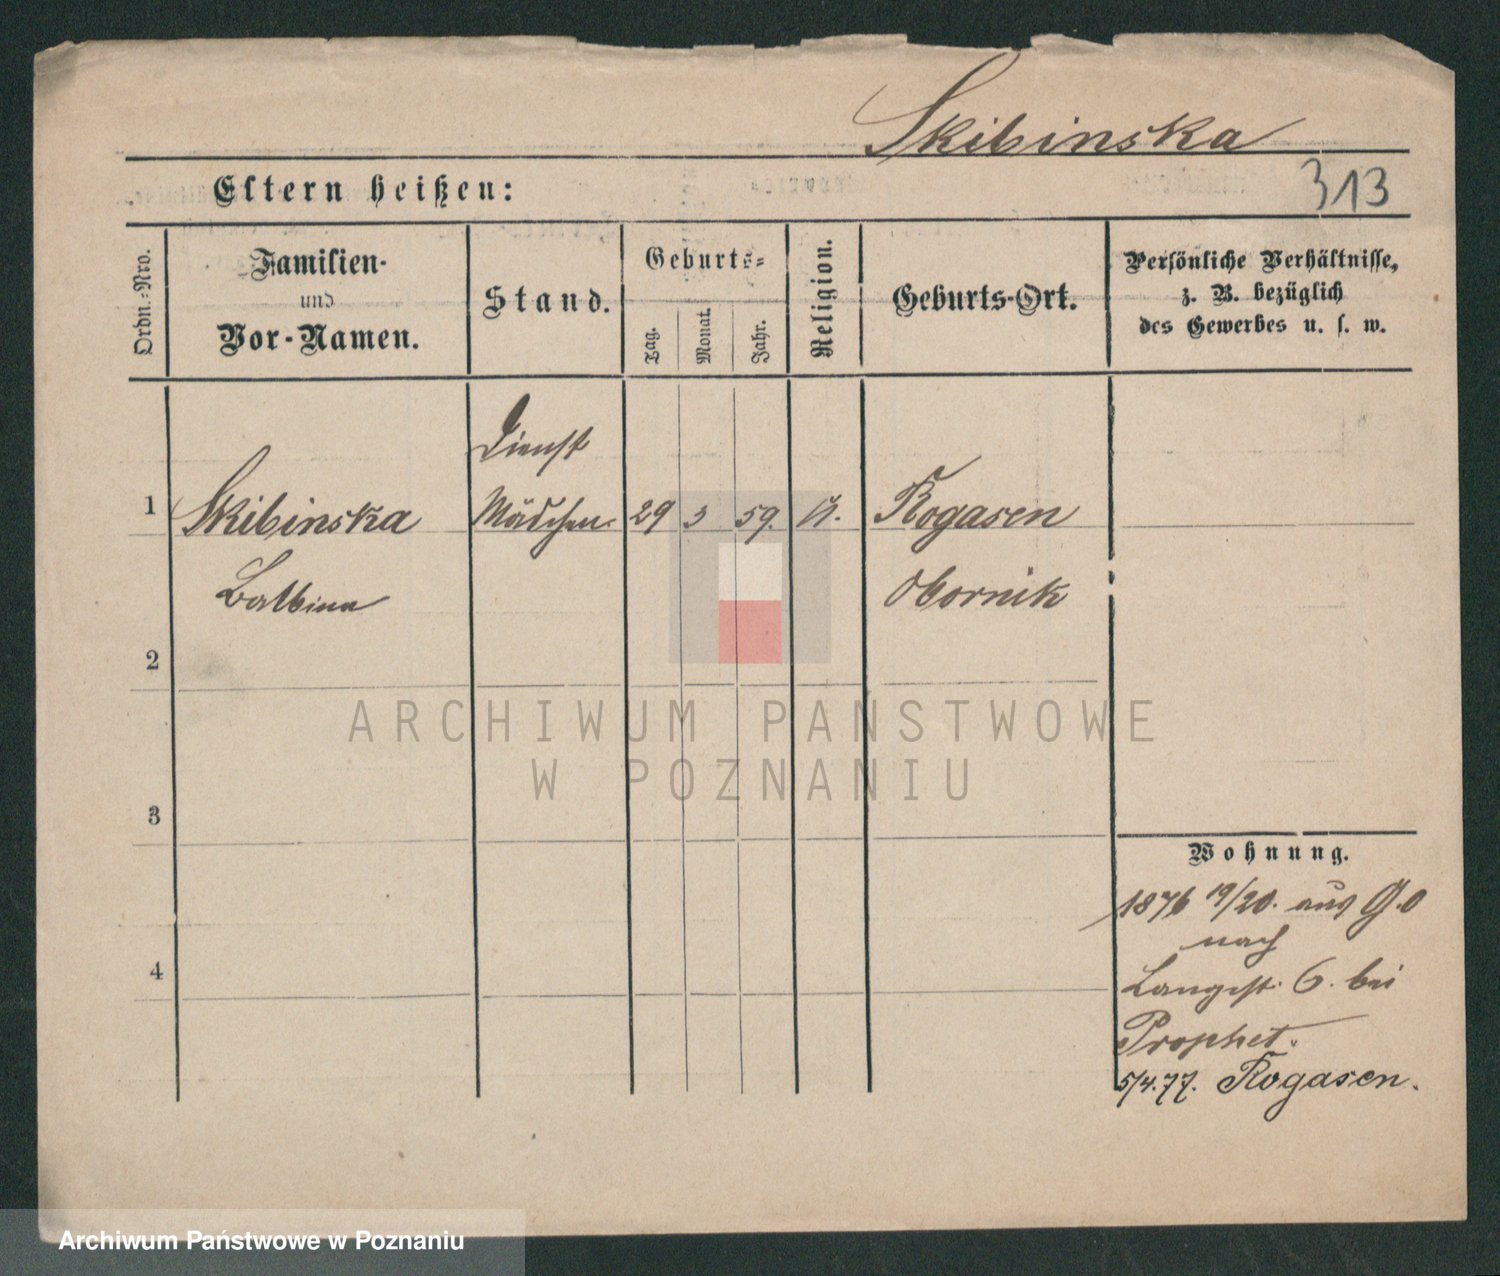 Skibinska
Eltern heißen:
313
Ordn.-Nro.
Familien-
und
Vor-Namen.
Stand.
Geburts-
Tag.
Monat.
Jahr.
Religion.
Geburts-Ort.
Persönliche Verhältnisse,
z. B. bezüglich
des Gewerbes u. s. w.
Dienst
1 Skibinska Mädchen. 29 3 59. Rogasen
Balbina Obornik
2
3
4
ARCHIWUM PAŃSTWOWE
W POZNANIU
Wohnung.
1876 19/20. aus G.O
nach
Langest. 6. bei
Prophet.
5/4.77. Rogasen.
Archiwum Państwowe w Poznaniu